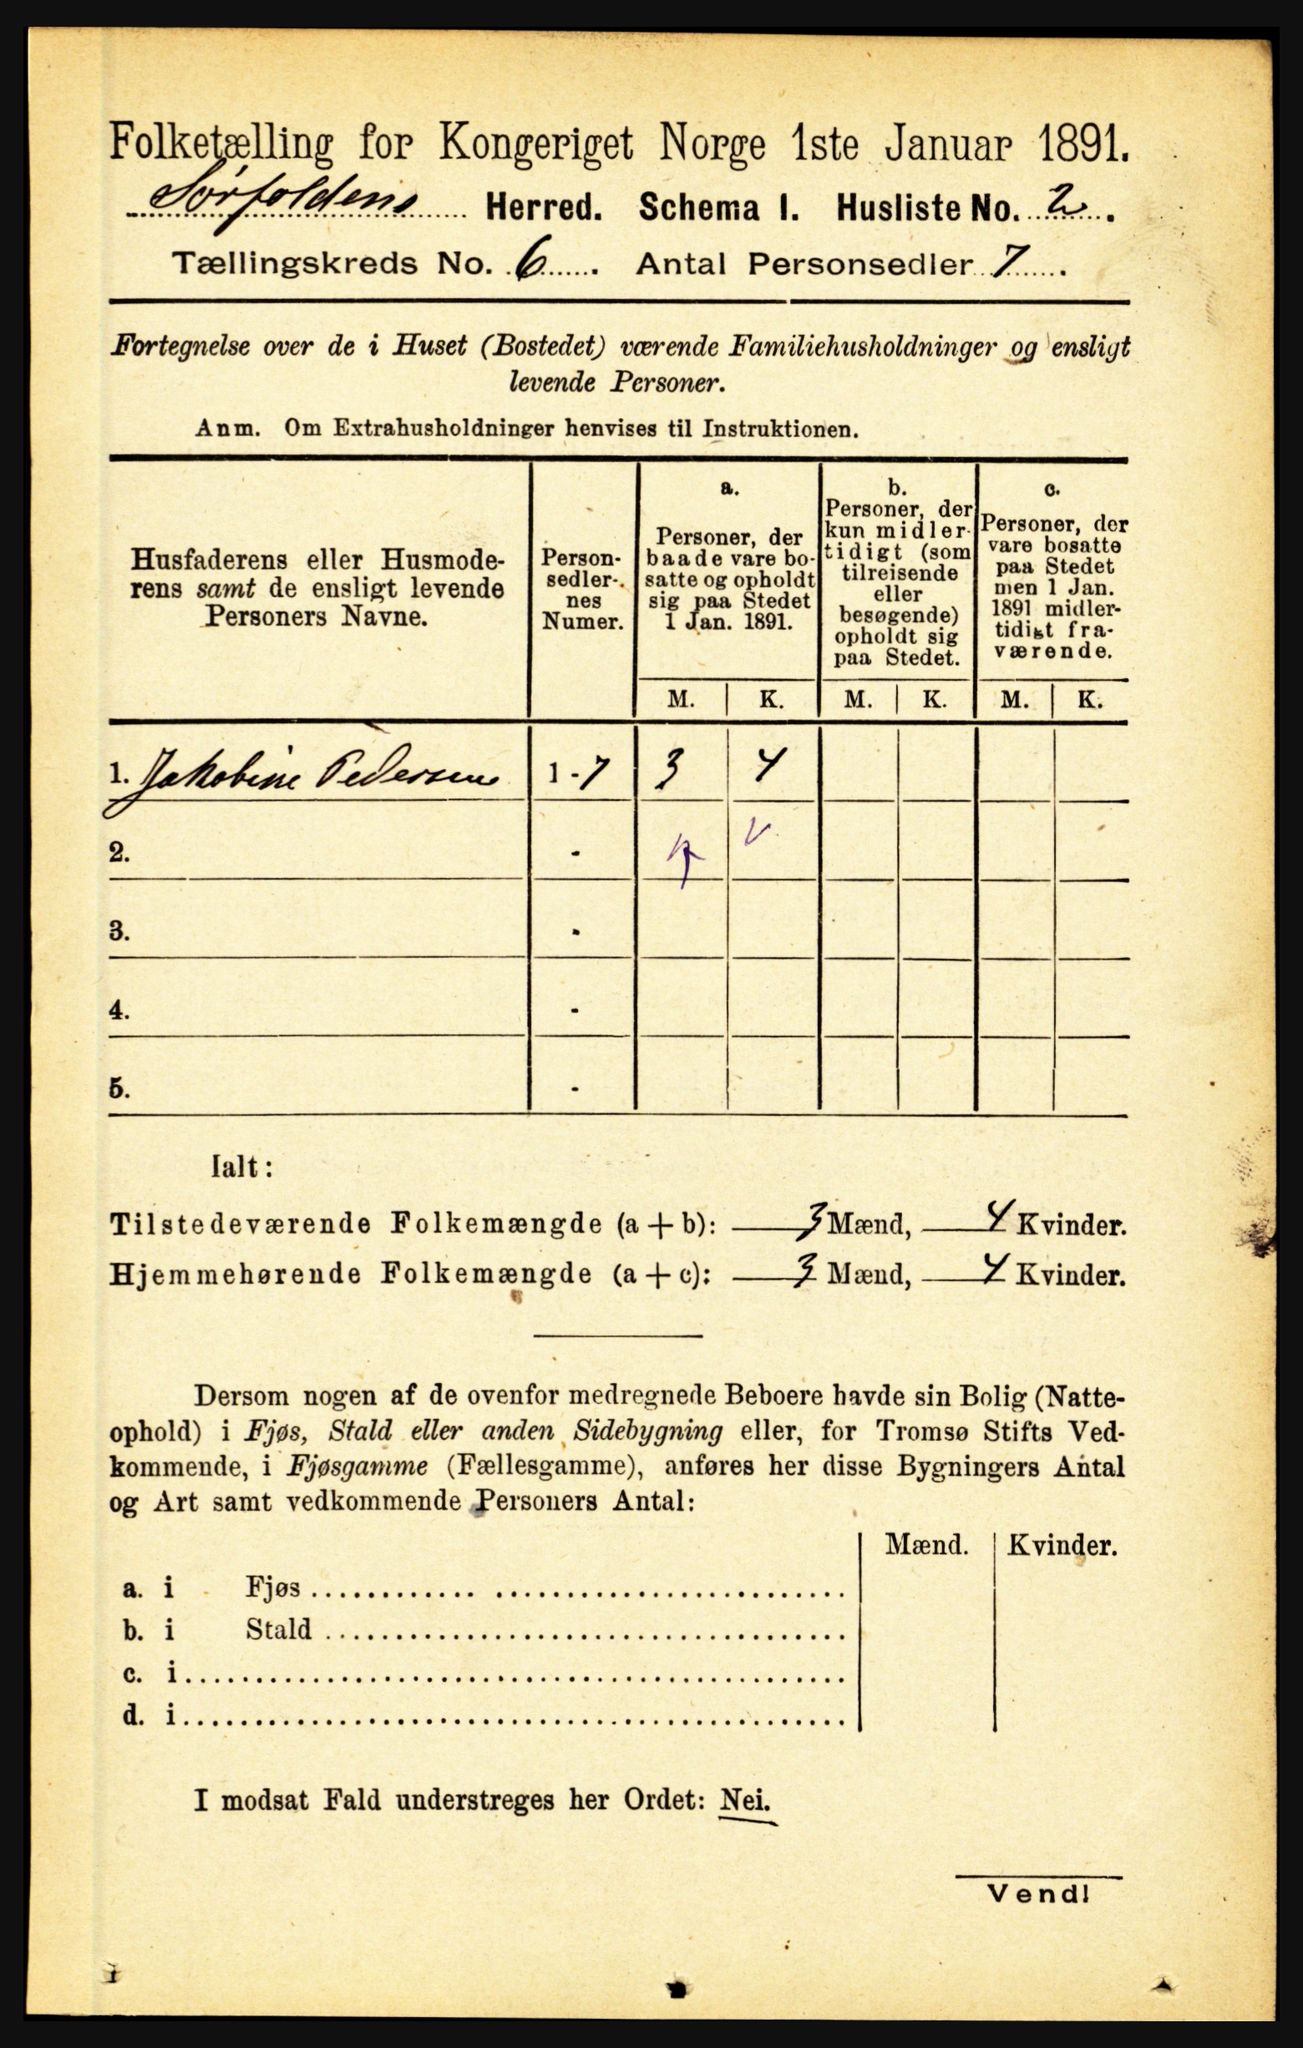 Folketælling for Kongeriget Norge 1ste Januar 1891.
Sørfoldens Herred. Schema I. Husliste No. 2.
Tællingskreds No. 6. Antal Personsedler 7.
Fortegnelse over de i Huset (Bostedet) værende Familiehusholdninger og ensligt
levende Personer.
Anm. Om Extrahusholdninger henvises til Instruktionen.
Husfaderens eller Husmode-
rens samt de ensligt levende
Personers Navne.
Person-
sedler-
nes
Numer.
a.
Personer, der
baade vare bo-
satte og opholdt
sig paa Stedet
1 Jan. 1891.
b.
Personer, der
kun midler-
tidigt (som
tilreisende
eller
besøgende)
opholdt sig
paa Stedet.
c.
Personer, der
vare bosatte
paa Stedet
men 1 Jan.
1891 midler-
tidigt fra-
værende.
M. K. M. K. M. K.
1. Jakobine Pedersen 1-7 3 4
2. -
3. -
4. -
5. -
Ialt:
Tilstedeværende Folkemængde (a + b): 3 Mænd, 4 Kvinder.
Hjemmehørende Folkemængde (a + c): 3 Mænd, 4 Kvinder.
Dersom nogen af de ovenfor medregnede Beboere havde sin Bolig (Natte-
ophold) i Fjøs, Stald eller anden Sidebygning eller, for Tromsø Stifts Ved-
kommende, i Fjøsgamme (Fællesgamme), anføres her disse Bygningers Antal
og Art samt vedkommende Personers Antal:
Mænd. Kvinder.
a. i Fjøs
b. i Stald
c. i
d. i
I modsat Fald understreges her Ordet: Nei.
Vend!